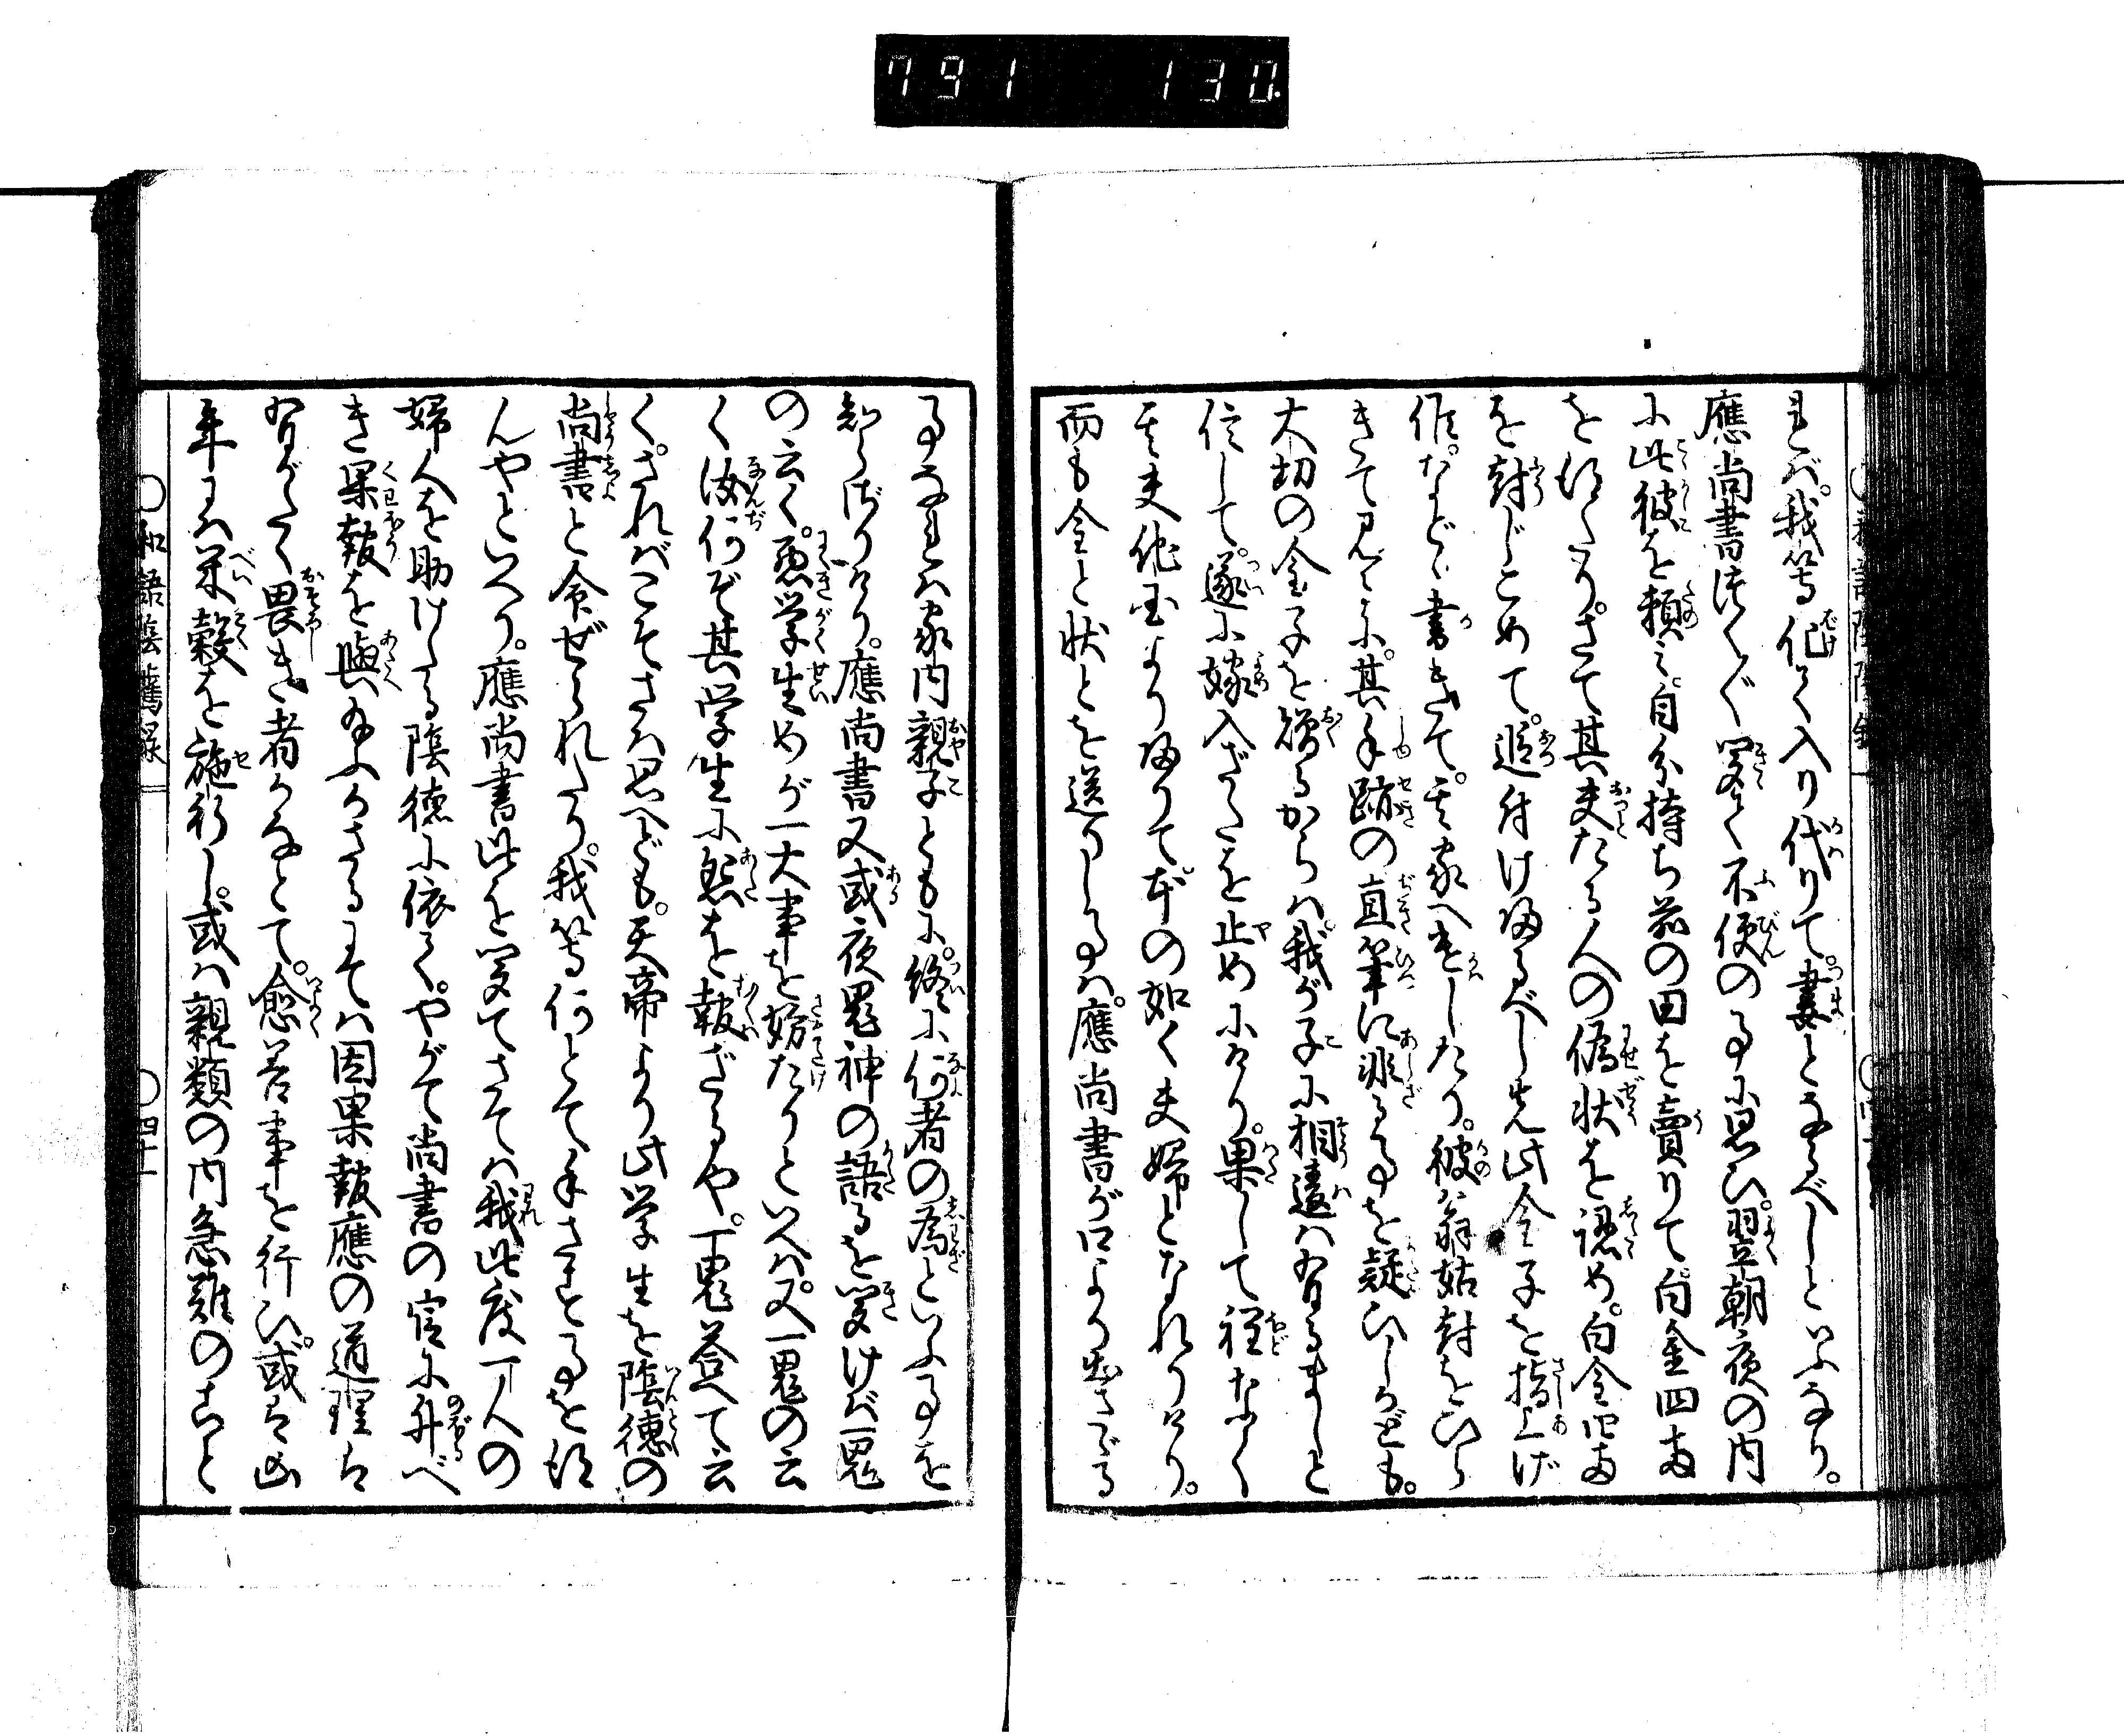 791 130
れば。我等化て入り代りて。妻となるべしといふなり。
應尚書つくづく聞て不便の事に思ひ。翌朝夜の内
に此彼を頼み。自分持ち前の田を賣りて。白金四両
を得たり。さて其夫たる人の偽状を認め。白金四両
を封じこめて。追付け帰るべし先此金子を指上げ
候。などゝ書きて。其家へ遣したり。彼翁姑封をひら
きて見るに。其手跡の直筆に非る事を疑ひしかども。
大切の金子を贈るからは。我が子に相違は有るまじと
信して。遂に嫁入ざたを止めにけり。果して程なく
其夫他国より帰りて。本の如く夫婦となれりけり。
而も金と状とを送りし事は。應尚書が口より出さざる
事なれは家内親子ともに。終に何者の為といふ事を
知らざりけり。應尚書又或夜鬼神の語るを聞けば一鬼
の云く。悪学生めが一大事を妨たりといへは。又一鬼の云
く汝何ぞ其学生に怨を報ざるや。一鬼答へて云
く。さればこそさは思へども。天帝より此学生を陰徳の
尚書と命ぜられたり。我等何とて手さすことを得
んやといへり。應尚書此を聞てさては我此度一人の
婦人を助けたる陰徳に依て。やがて尚書の官に升べ
き果報を與給ふかさるにては因果報應の道理は
有がたく畏き者かなとて。愈善事を行ひ。或は凶
年には米穀を施行し。或は親類の内急難のこと
和語陰隲録
四十一